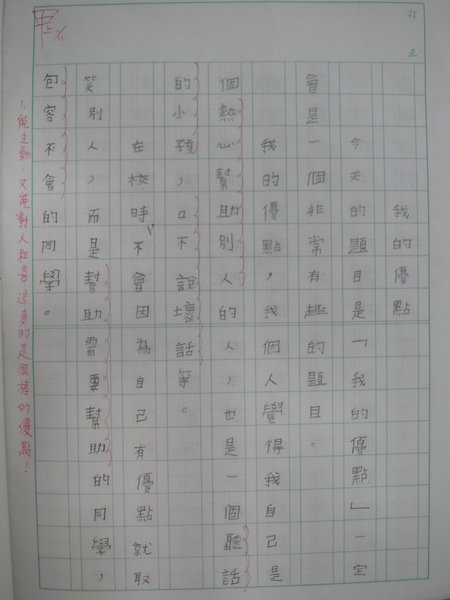 訂正
我的優點
今天的題目是「我的優點」一定
會是一個非常有趣的題目。
我的優點，我個人覺得我自己是
個熱心幫助別人的人，也是一個聽話
的小孩，口不說壞話等。
在校時，不會因為自己有優點就取
笑別人，而是幫助需要幫助的同學，
包容不會的同學。
甲上
能主動，又能對人和善這真的是很棒的優點！